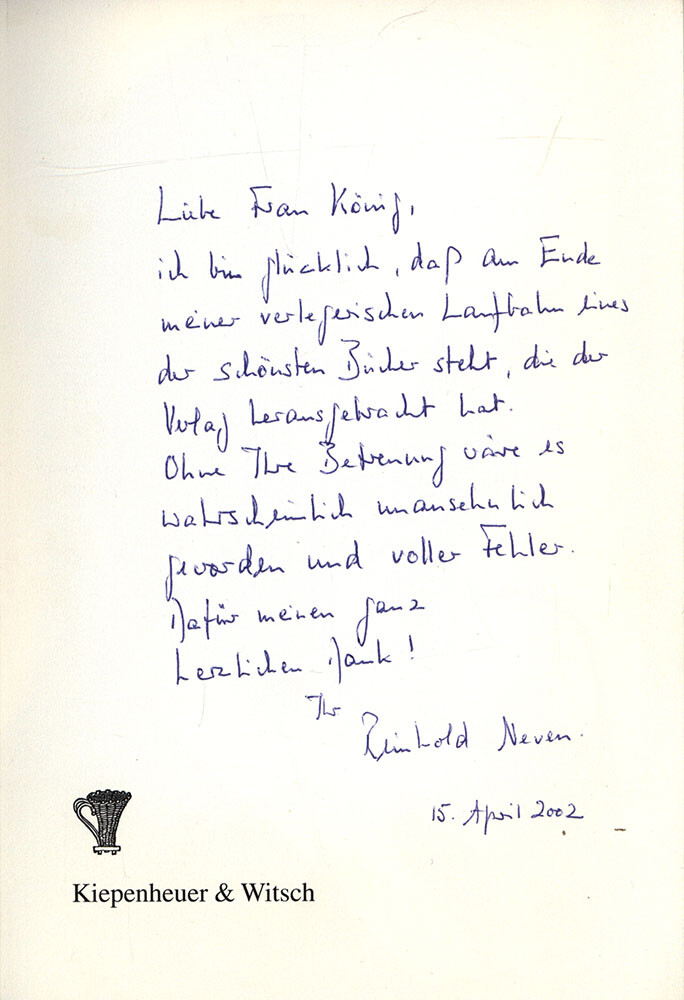 Liebe Frau König,
ich bin glücklich, daß am Ende
meiner verlegerischen Laufbahn eines
der schönsten Bücher steht, die der
Verlag herausgebracht hat.
Ohne Ihre Betreuung wäre es
wahrscheinlich unansehnlich
geworden und voller Fehler.
Dafür meinen ganz
herzlichen Dank!
Ihr
Reinhold Neven.
15. April 2002
Kiepenheuer & Witsch